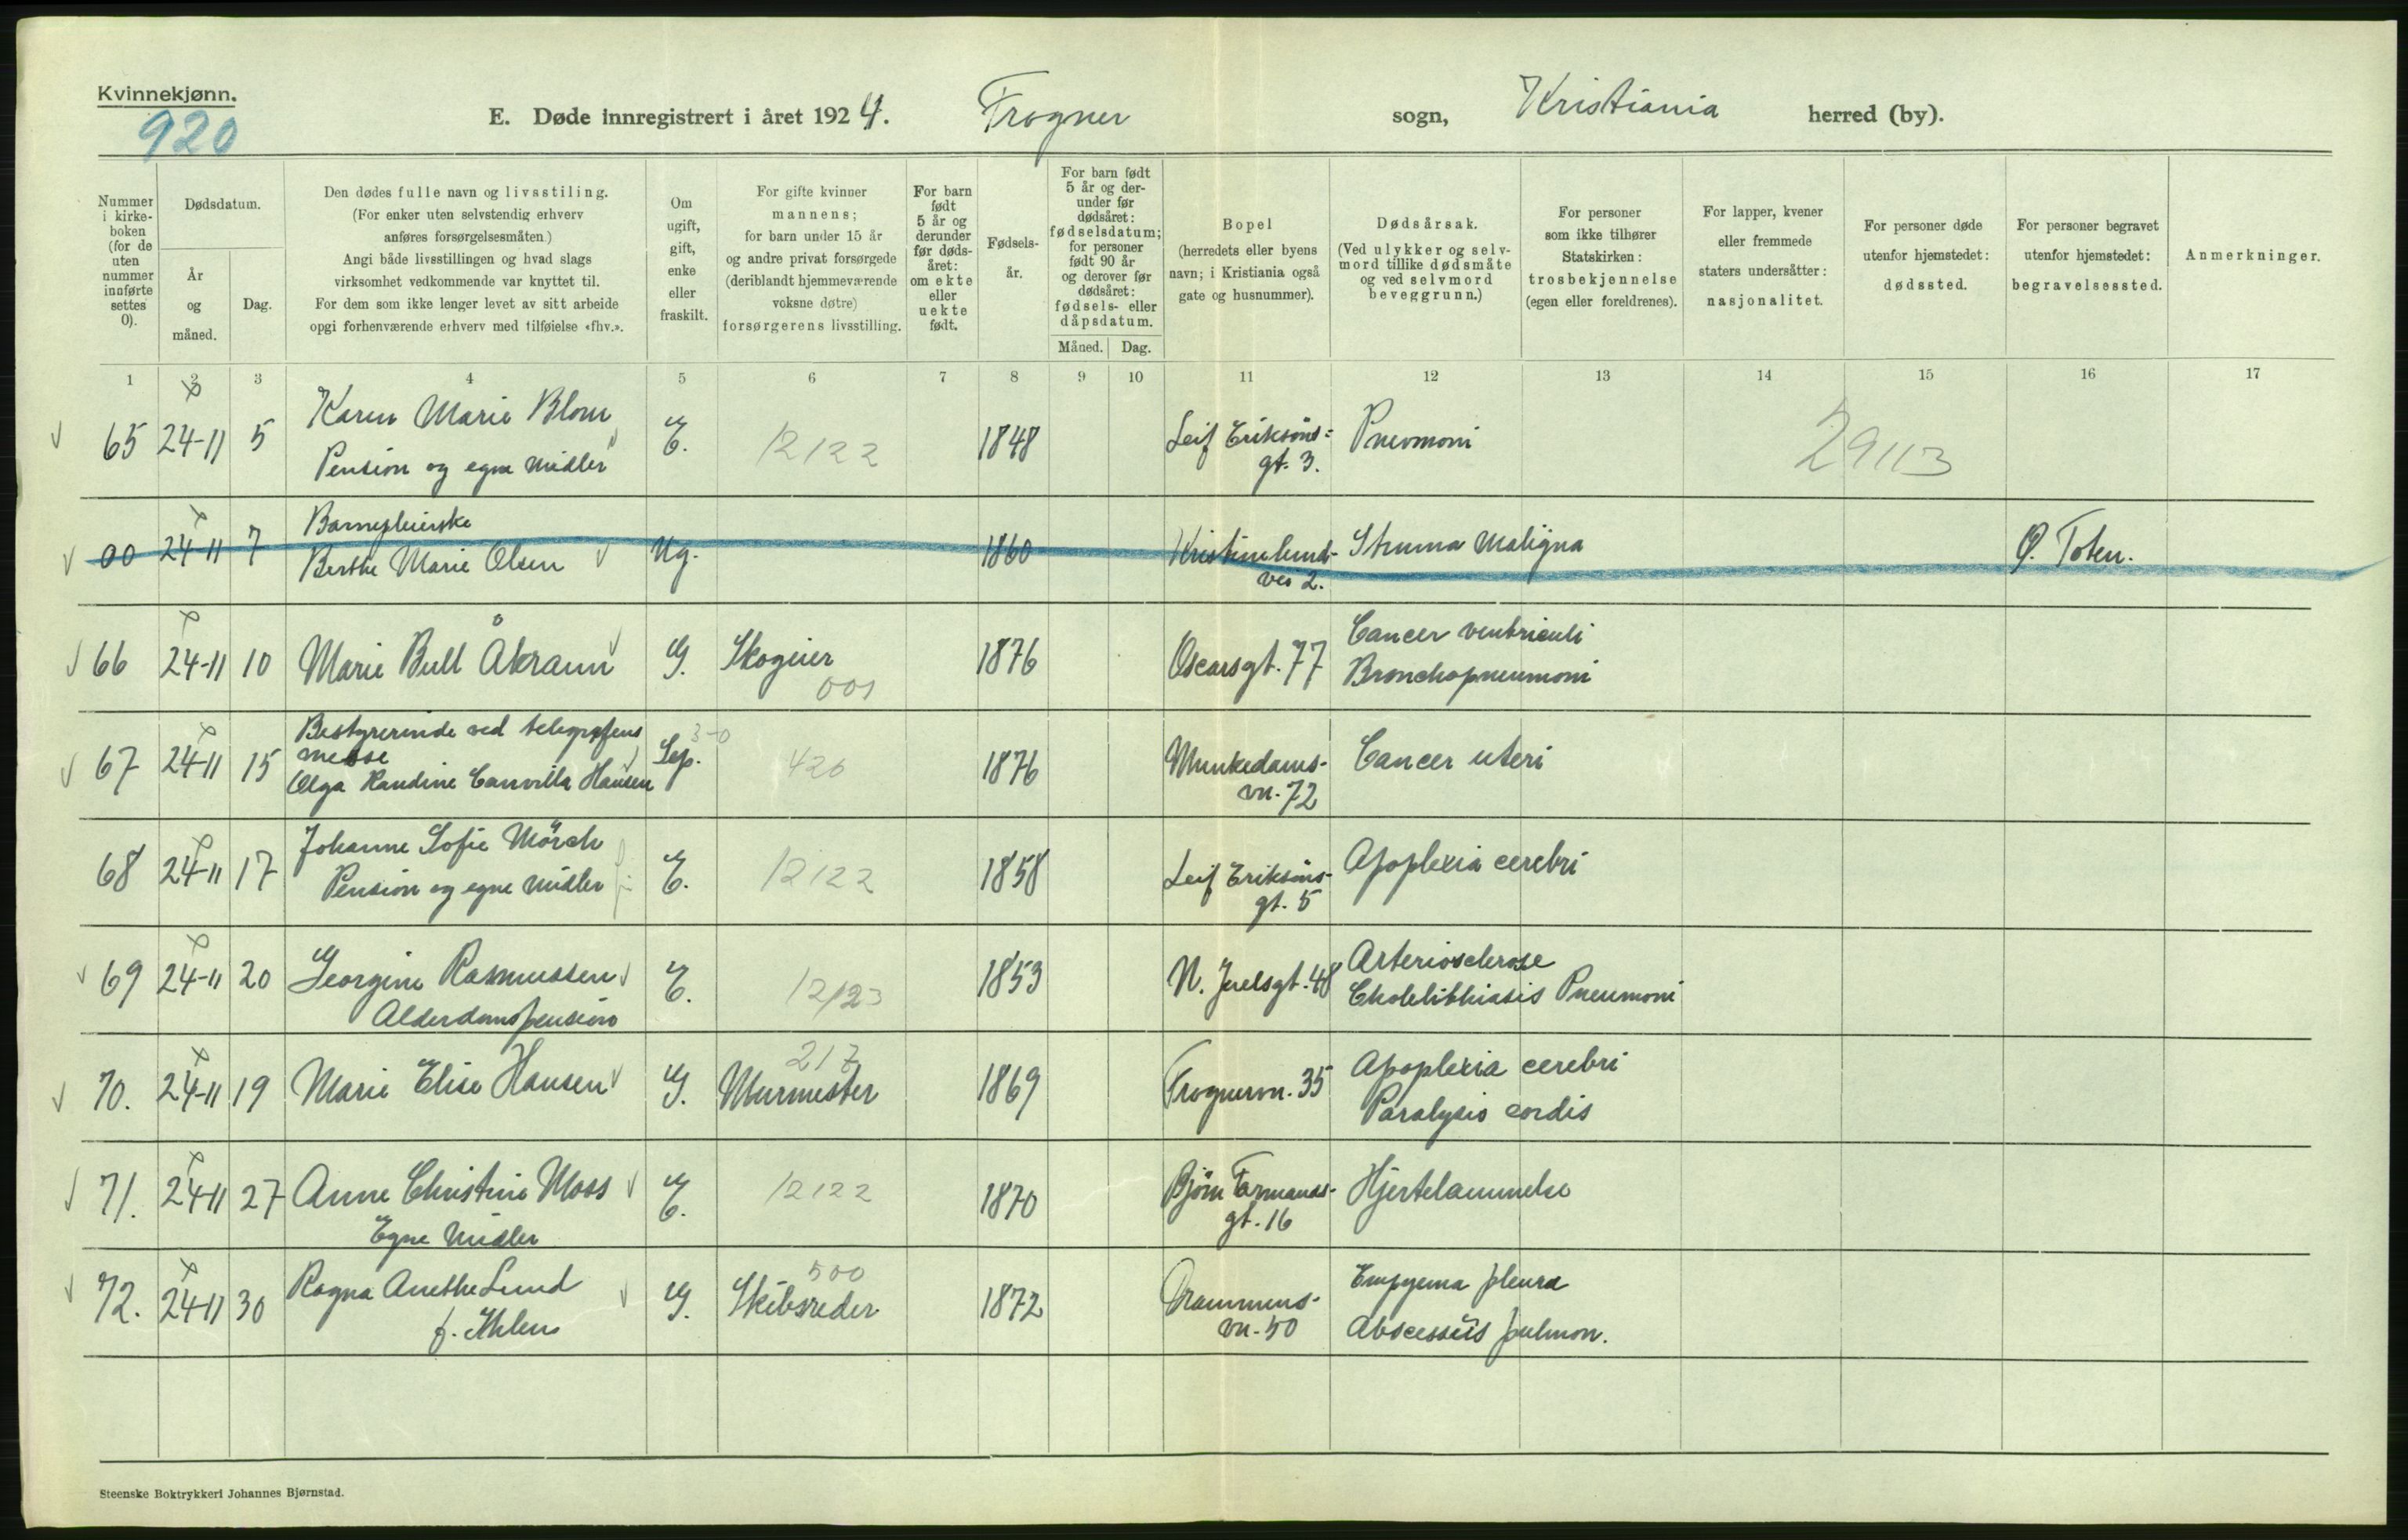 Kvinnekjønn.
920
E. Døde innregistrert i året 1924. Frogner sogn, Kristiania herred (by).
Nummer i kirke-boken (for de uten nummer innførte settes 0).
Dødsdatum.
År og måned.
Dag.
Den dødes fulle navn og livsstiling.
(For enker uten selvstendig erhverv
anføres forsørgelsesmåten.)
Angi både livsstillingen og hvad slags
virksomhet vedkommende var knyttet til.
For dem som ikke lenger levet av sitt arbeide
opgi forhenværende erhverv med tilføielse «fhv.».
Om
ugift,
gift,
enke
eller
fraskilt.
For gifte kvinner
mannens;
for barn under 15 år
og andre privat forsørgede
(deriblandt hjemmeværende
voksne døtre)
forsørgerens livsstilling.
For barn
født
5 år og
derunder
før døds-
året:
om ekte
eller
uekte
født.
Fødsels-
år.
For barn født
5 år og der-
under før
dødsåret:
fødselsdatum;
for personer
født 90 år
og derover før
dødsåret:
fødsels- eller
dåpsdatum.
Måned. Dag.
Bopel
(herredets eller byens
navn; i Kristiania også
gate og husnummer).
Dødsårsak.
(Ved ulykker og selv-
mord tillike dødsmåte
og ved selvmord
beveggrunn.)
For personer
som ikke tilhører
Statskirken:
trosbekjennelse
(egen eller foreldrenes).
For lapper, kvener
eller fremmede
staters undersåtter:
nasjonalitet.
For personer døde
utenfor hjemstedet:
dødssted.
For personer begravet
utenfor hjemstedet:
begravelsessted.
Anmerkninger.
1 2 3 4 5 6 7 8 9 10 11 12 13 14 15 16 17
65 24-11 5 Karen Marie Blom
Pension og egne midler E. 12122 1848 Leif Eriksöns-
gt. 3. Pneumoni 29113
00 24-11 7 Barnepleierske
Berthe Marie Olsen Ug. 1860 Kristinelund-
vei 2. Struma maligna Ø. Toten.
66 24-11 10 Marie Bull Åkrann G. Skogeier
001 1876 Oscarsgt. 77 Cancer ventriculi
Bronchopneumoni
67 24-11 15 Bestyrerinde ved telegrafens
messe
Olga Randine Hansen Sep. 3-0 426 1876 Munkedams-
vn. 72 Cancer uteri
68 24-11 17 Johanne Sofie Mörch
Pension og egne midler E. 12122 1858 Leif Eriksöns-
gt. 5 Apoplexia cerebri
69 24-11 20 Georgine Rasmussen
Alderdomspension E. 12123 1853 N. Juelsgt. 48 Arteriosclerose
Cholelithiasis Pneumoni
70. 24-11 19 Marie Elise Hansen G. 217
Murmester 1869 Frognervn. 35 Apoplexia cerebri
Paralysis cordis
71. 24-11 27 Anne Christine Moss
Egne midler E. 12122 1870 Björn Farmands-
gt. 16 Hjertelammelse
72. 24-11 30 Ragna Anethe Lund
f. Ihlen G. 500
Skibsreder 1872 Drammens-
vn. 50 Empyema pleura
Abscessus pulmon.
Steenske Boktrykkeri Johannes Bjørnstad.